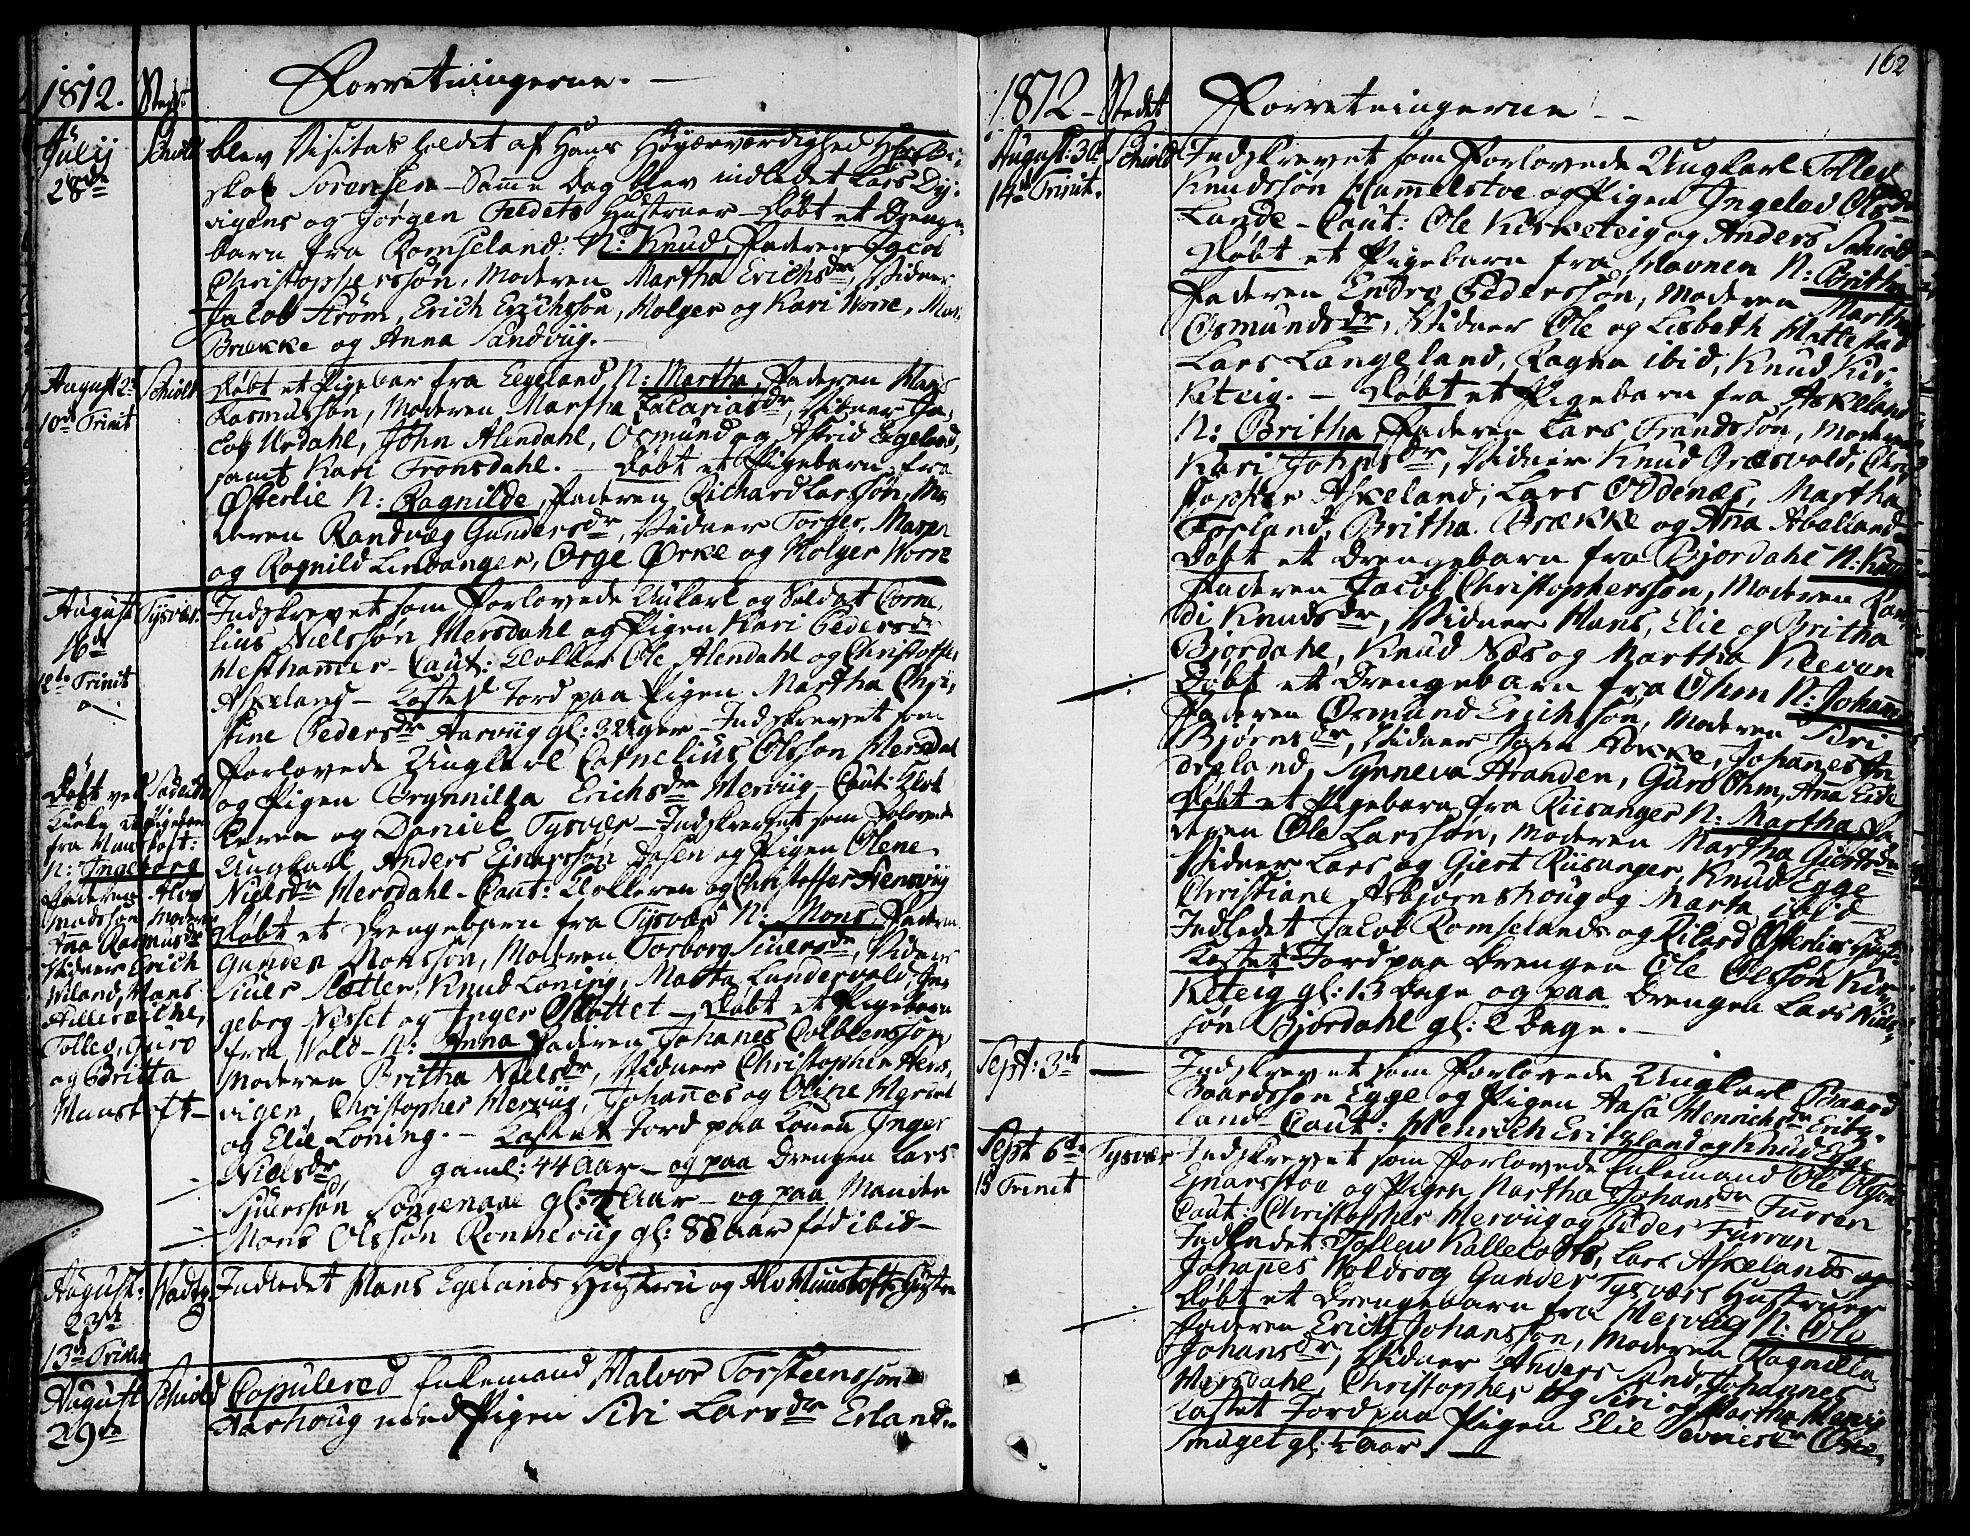 1812. Stedet
Forretningerne. —
Julij 28de
Schiold
blev Visitas holdet af Hans Høyærværdighed Hr Bi-
skop Sørensen — Samme Dag blev indledet Lars Dy-
vigens og Jørgen Feedets Hustruer — Døbt et Drenge-
barn fra Romseland: N: Knud, Faderen Jacob
Christophersøn, Moderen Martha Erichsdr, Vidner
Jacob Strøm, Erich Erichssøn, Holger og Kari Norre,
Brække og Anna Sandviig. —
August 2de
10de Trinit
Schiold
Døbt et Pigebar fra Egeland, N: Martha, Faderen Hans
Rasmussøn, Moderen Martha Zacariasdr, Vidner Ja-
cob Urdahl, John Alendahl, Osmund og Astrid Egeland,
samt Kari Tronsdahl. — Døbt et Pigebarn fra
Østerlie N: Ragnilde, Faderen Richard Larssøn, Mo-
deren Randvæg Gundersdr, Vidner Torger, Maren
og Ragnild Lindanger, Ørge Ørke og Holger Norre
August 16de
12te Trinit
Tysvær
Indskrevet som Forlovede Unkarl og Soldat Corne-
lius Nielssøn Mersdahl og Pigen Kari Pedersdr
Westhammer — Caut: Klokker Ole Alendahl og Christoffer
Askeland — Kastet Jord paa Pigen Martha Chri-
stine Pedersdr Aarviig gl: Uger — Indskrevet som
Forlovede Ungkarl Cornelius Olsson Mersdal
og Pigen Brynnilla Erichsdr Merviig — Caut: Klok-
keren og Daniel Tysvær — Indskrevet som Forlovede
Ungkarl Anders Ejnarssøn og Pigen Olene
Nielsdr Mersdahl — Caut: Klokkeren og Christoffer Hensviig
Døbt et Drengebarn fra Tysvær N: Mons, Faderen
Gunder Monssøn, Moderen Torborg Siversdr, Vidner
Siver Slotten, Knud Loning, Malta Landervold, In-
geborg Nesset og Inger Slottet — Døbt et Pigebarn
fra Vold — N: Anna Faderen Johanes Colblenssøn,
Moderen Britha Nielsdr, Vidner Christopher Hens-
vigen, Christopher Merviig, Johannes og Oline
og Elie Loning. — Kastet Jord paa Konen Inger
Nielsdr, gaml: 44 Aar — og paa Drengen Lars
Sjverssøn Aar — og paa Manden
Mons Olssøn Rønneviig gl: 88 Aar fød ibid —
Døbt ved
Kirke et Pigebarn
fra Munstoft:
N: Ingeborg
Faderen Alv
Moderen
Ana Rasmusdr
Vidner Erich
Wiland, Hans
Tolles, Guro
og Britta
Munstoft —
August 23de
13de Trinit
Indledet Hans Egelands Hustru og Alv Munstofts Hustru
August 29de
Schiold
Copulered Enkemand Halvor Torsteenssøn
Aarhoug med Pigen Siri Larsdr Erland —
162
1812 — Stedet
Forretningerne —
August: 30de
14de Trinit.
Schiold
Indskrevet som Forlovede Ungkarl Tollev
Knudssøn Hammelstoe og Pigen Ingelev Olsdr
Lande — Caut: Ole Kirketeig og Anders Schiold
Døbt et Pigebarn fra Havnen N: Britha,
Faderen Endre Pederssøn, Moderen Martha
Osmundsdr, Vidner Ole og Lisbeth Mattestad
Lars Langeland, Ragna ibid, Knud Kir-
keteig. — Døbt et Pigebarn fra Askeland
N: Britha, Faderen Lars Trandssøn, Moderen
Kari Johnsdr, Vidner Knud Græsvold, Chri-
stopher Askeland, Lars Oddenæs, Martha
Forland, Britha Brække og Ana Aballand
Døbt et Drengebarn fra Bjordahl N: Knud
Faderen Jacob Christopherssøn, Moderen Ran-
di Knudsdr, Vidner Hans, Elie og Britha
Bjordahl, Knud Næs og Martha Kleevan
Døbt et Drengebarn fra Ohm N: Johan
Faderen Osmund Erichssøn, Moderen Siri
Bjørnsdr, Vidner John Stokke, Johanes In-
dreland, Synneva Stranden, Guro Ohm, Ana Eide
Døbt et Pigebarn fra Riisanger N: Martha, Fa-
deren Ole Larssøn, Moderen Martha Giertsdr
Vidner Lars og Giert Riisanger, Knud Egge
Christiane Asbjørnshoug og Marta ibid
Indledet Jacob Romselands og Rikard Østerlies Hustr.
Kastet Jord paa Drengen Ole Olssøn Kir-
keteig gl: 13 Dage og paa Drengen Lars Niels-
søn Bjordahl gl: 2 Dage. —
Sept: 3de —
Indskrevet som Forlovede Ungkarl Baard
Baardssøn Egge og Pigen Aasa Henrichsdr Eritz-
land — Caut: Henrich Eritzland og Knud Egge
Sept 6te
15 Trinit
Tysvær
Indskrevet som Forlovede Enkemand Ole Olsøn
Ejnarsstoe og Pigen Martha Johansdr Furren
Caut: Christopher Merviig og Peder Furren —
Indledet Tollev Kallekodts, Lars Askelands og
Johanes Wolds og Gunder Tysværs Hustruer
Døbt et Drengebarn fra Merviig N: Ole
Faderen Erich Johanssøn, Moderen Ragnilla
Johansdr, Vidner Anders Sand, Johannes
Mersdahl, Christopher og Siri og Martha Merviig
Kastet Jord paa Pigen Elie
Smuget gl: ½ Aar. —